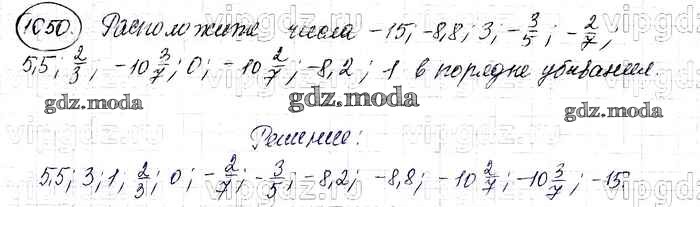 1050. Расположите числа -15; -8,8; 3; -3/5; -2/7;
5,5; 2/3; -10 3/7; 0; -10 2/7; -8,2; 1 в порядке убывания.
gdz.moda gdz.moda
gdz.moda
Решение:
5,5; 3; 1; 2/3; 0; -2/7; -3/5; -8,2; -8,8; -10 2/7; -10 3/7; -15.